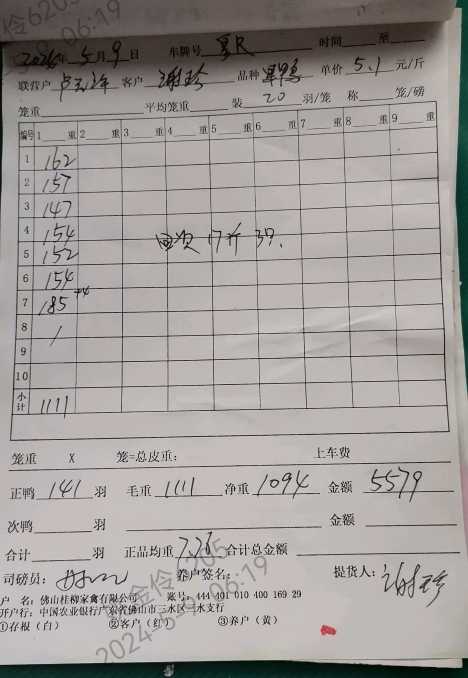 2024年5月9日 车牌号 时间 至
联营户 客户 谢珍 品种 单价 5.1 元/斤
笼重 平均笼重 装 20 羽/笼 称 笼/磅
编号 1 重 2 重 3 重 4 重 5 重 6 重 7 重 8 重 9 重
1 162
2 157
3 147
4 154
5 152
6 154
7 185 +4
8 /
9
10
小计 1111
17斤 3只
笼重 X 笼=总皮重: 上车费
正鸭 141 羽 毛重 1111 净重 1094 金额 5579
次鸭 羽 金额
合计 羽 正品均重 7.76 合计总金额
司磅员: 养户签名: 提货人: 谢珍
户 名: 佛山桂柳家禽有限公司 账号: 444 401 010 400 169 29
开户行: 中国农业银行广东省佛山市三水区三水支行
①存根(白) ②客户(红) ③养户(黄)
金伶6205
2024-5-9 06:19